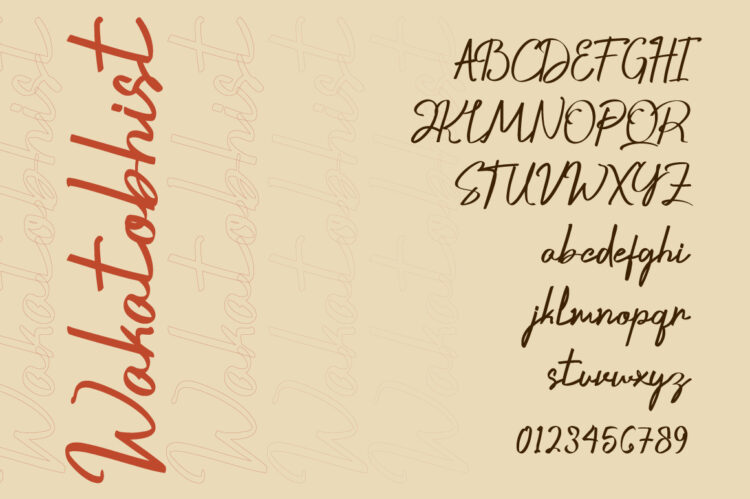 Wakatobhist
Wakatobhist
Wakatobhist
Wakatobhist
Wakatobhist
ABCDEFGHI
JKLMNOPQR
STUVWXYZ
abcdefghi
jklmnopqr
stuvwxyz
0123456789